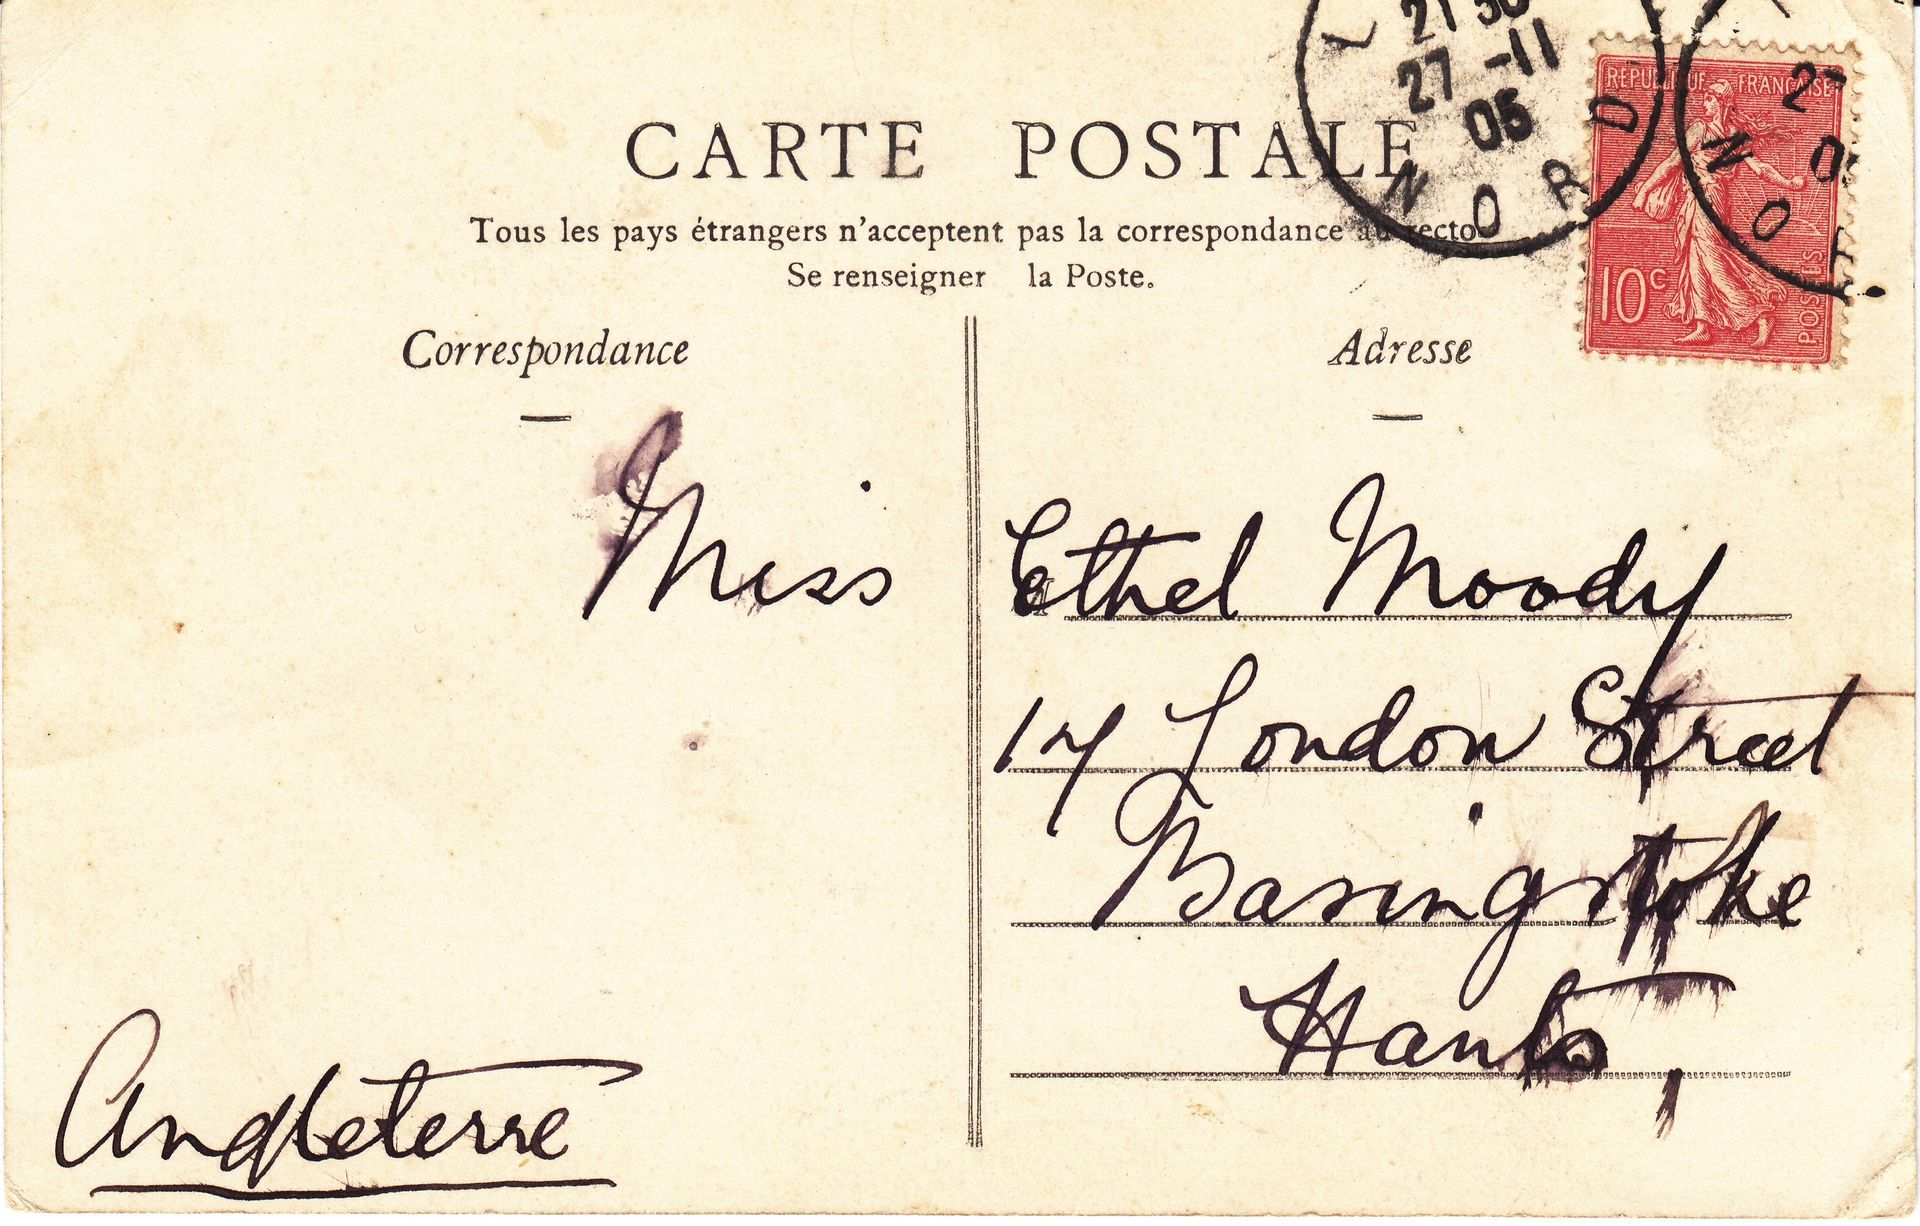 L 21 30
27 -11
05
NORD
REPUBLIQUE FRANÇAISE
10c
POSTES
2
0
NO
CARTE POSTALE
Tous les pays étrangers n'acceptent pas la correspondance au recto
Se renseigner la Poste.
Correspondance
Adresse
Miss Ethel Moody
17 London Street
Basingstoke
Hants,
Angleterre